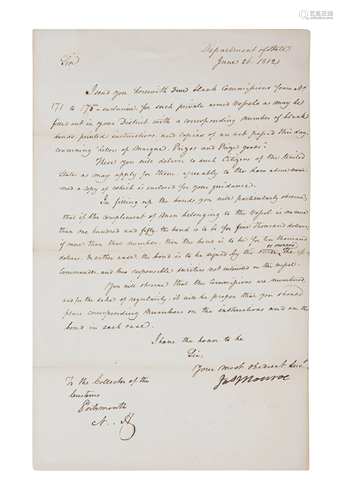 Department of State
June 26. 1812
Sir
I send you herewith five blank Commissions from No
171 to 175 inclusive for such private armed vessels as may be
fitted out in your District with a corresponding number of blank
bonds, printed instructions, and copies of an act passed this day,
concerning Letters of Marque, Prizes and Prize goods.
These you will deliver to such Citizens of the United
States as may apply for them agreeably to the law above
a copy of which is enclosed for your guidance.
In filling up the bonds, you will particularly observe,
that if the complement of Men belonging to the vessel is no more
than one hundred and fifty, the bond is to be for five Thousand dollars,
if more than that number, then the bond is to be for ten thousand
dollars. In either case, the bond is to be signed by the owners the
Commander and two responsible sureties not interested in the vessel.
You will observe that the Commissions are numbered,
and for the sake of regularity, it will be proper that you should
place corresponding Numbers on the instructions and on the
bond in each case.
I have the honor to be
Sir,
Your most obedient Servt.
Jas Monroe
To the Collector of the
Customs
Portsmouth
N. H.